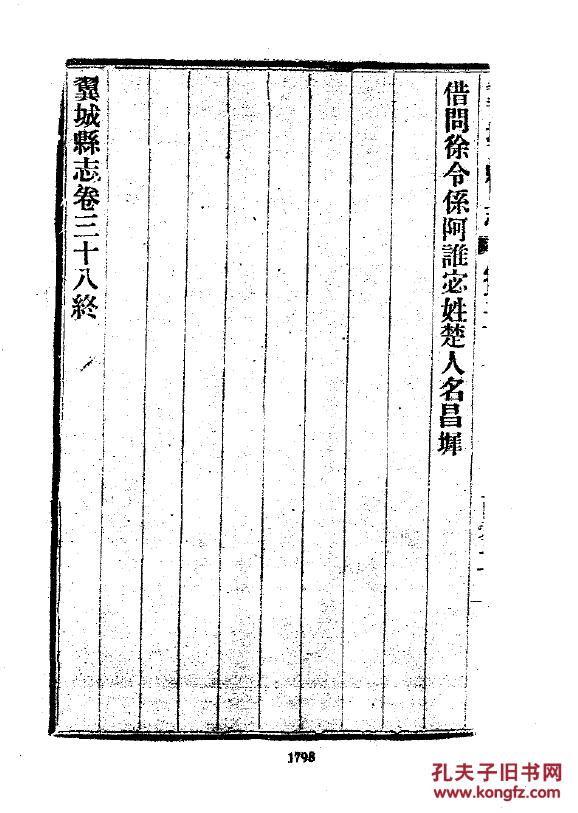 借問徐令係阿誰宓姓楚人名昌墀
翼城縣志卷三十八終
1798
孔夫子旧书网
www.kongfz.com